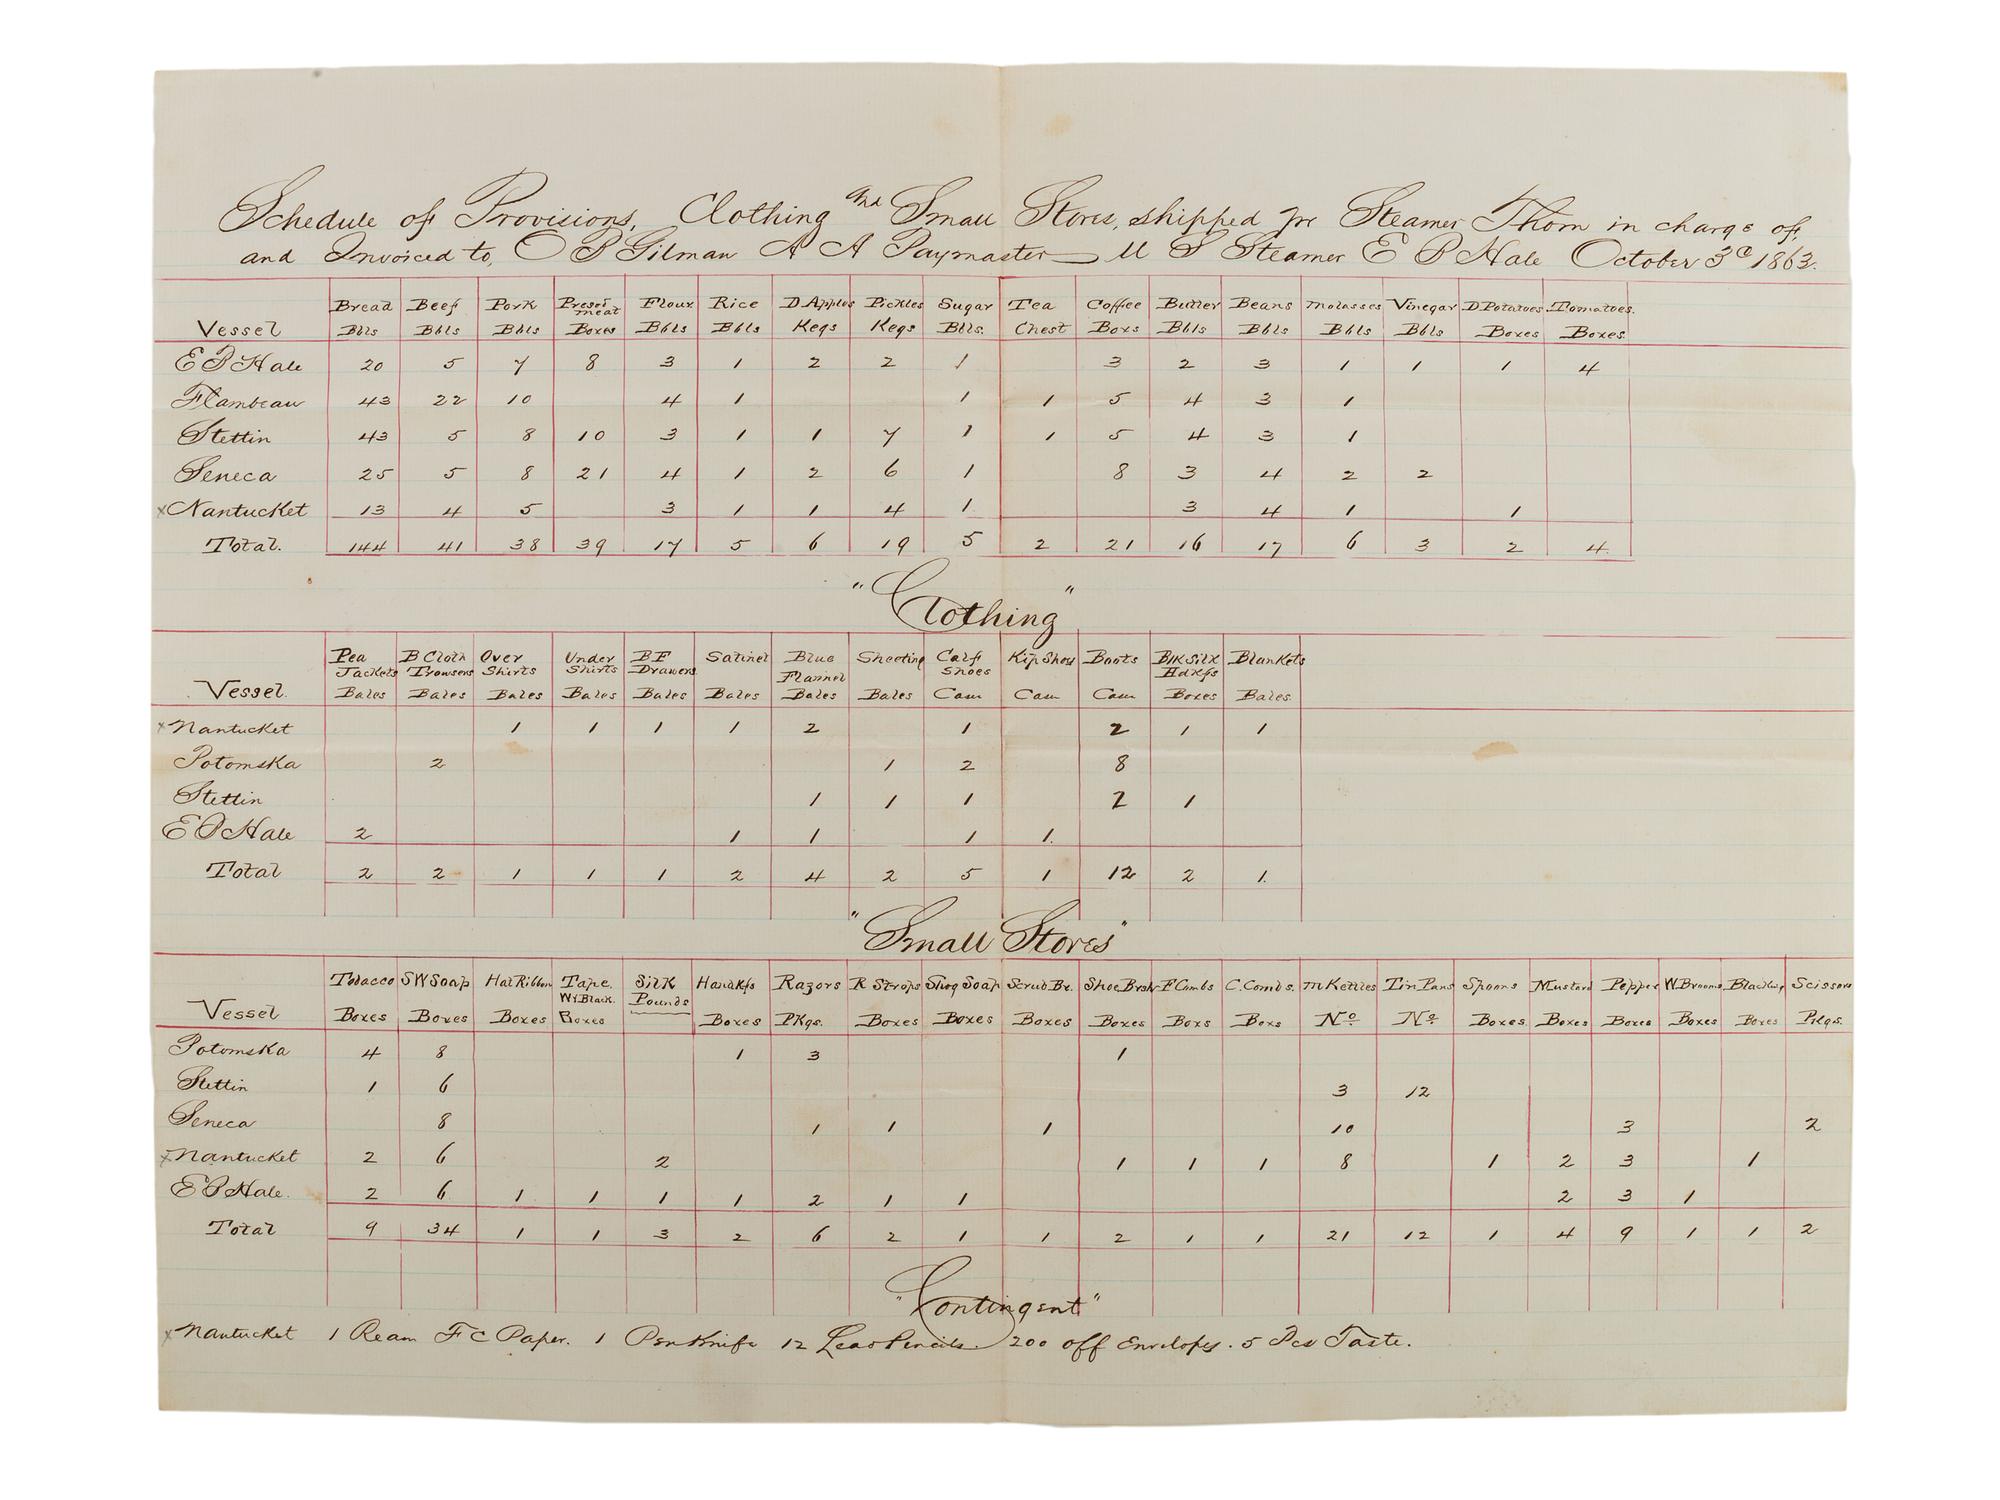 Schedule of Provisions, Clothing and Small Stores, shipped pr Steamer Thorn in charge of
and Invoiced to, O B Gilman A A Paymaster U S Steamer E B Hale October 3d 1863.
Vessel Bread Bbls Beef Bbls Pork Bbls Presed meat Boxes Flour Bbls Rice Bbls D Apples Kegs Pickles Kegs Sugar Blls. Tea Chest Coffee Boxs Butter Bbls Beans Bbls Molasses Bbls Vinegar Bbls D Potatoes Boxes Tomatoes. Boxes
E B Hale 20 5 7 8 3 1 2 2 1 3 2 3 1 1 1 4
Flambeau 43 22 10 4 1 1 1 5 4 3 1
Stettin 43 5 8 10 3 1 1 7 1 1 5 4 3 1
Seneca 25 5 8 21 4 1 2 6 1 8 3 4 2 2
x Nantucket 13 4 5 3 1 1 4 1 3 4 1 1
Total. 144 41 38 39 17 5 6 19 5 2 21 16 17 6 3 2 4
"Clothing"
Vessel. Pea Jackets Bales B Cloth Trowsers Bales Over Shirts Bales Under Shirts Bales B F Drawers Bales Satinet Bales Blue Flannel Bales Sheeting Bales Calf Shoes Case Kip Shoes Case Boots Case Blk Silk Hdkfs Boxes Blankets Bales.
x Nantucket 1 1 1 1 2 1 2 1 1
Potomska 2 1 2 8
Stettin 1 1 1 2 1
E B Hale 2 1 1 1 1.
Total 2 2 1 1 1 2 4 2 5 1 12 2 1.
"Small Stores"
Vessel Tobacco Boxes S W Soap Boxes Hat Ribbon Boxes Tape. W & Black. Boxes Silk Pounds Handkfs Boxes Razors Pkgs. R Strops Boxes Shvg Soap Boxes Scrub Br. Boxes Shoe Brsh Boxes F Combs Boxs C. Combs. Boxs M Kettles No Tin Pans No Spoons Boxes Mustard Boxes Pepper Boxes W. Brooms Boxes Blacking Boxes Scissors Pkgs.
Potomska 4 8 1 3 1
Stettin 1 6 3 12
Seneca 8 1 1 1 10 3 2
x Nantucket 2 6 2 1 1 1 8 1 2 3 1
E B Hale. 2 6 1 1 1 1 2 1 1 2 3 1
Total 9 34 1 1 3 2 6 2 1 1 2 1 1 21 12 1 4 9 1 1 2
"Contingent"
x Nantucket 1 Ream F C Paper. 1 Pen Knife 12 Lead Pencils. 200 off Envelopes. 5 Pcs Taste.